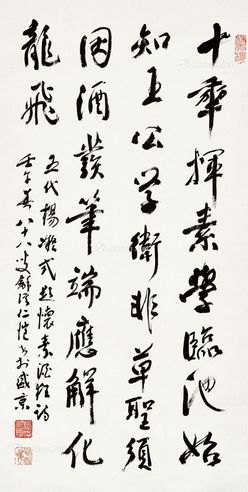 十年揮素學臨池始
知王公学衛非草聖須
因酒發筆端應解化
龍飛
五代楊凝式題懷素酒狂詩
壬午春八十八叟龢溪仁愷書於盛京